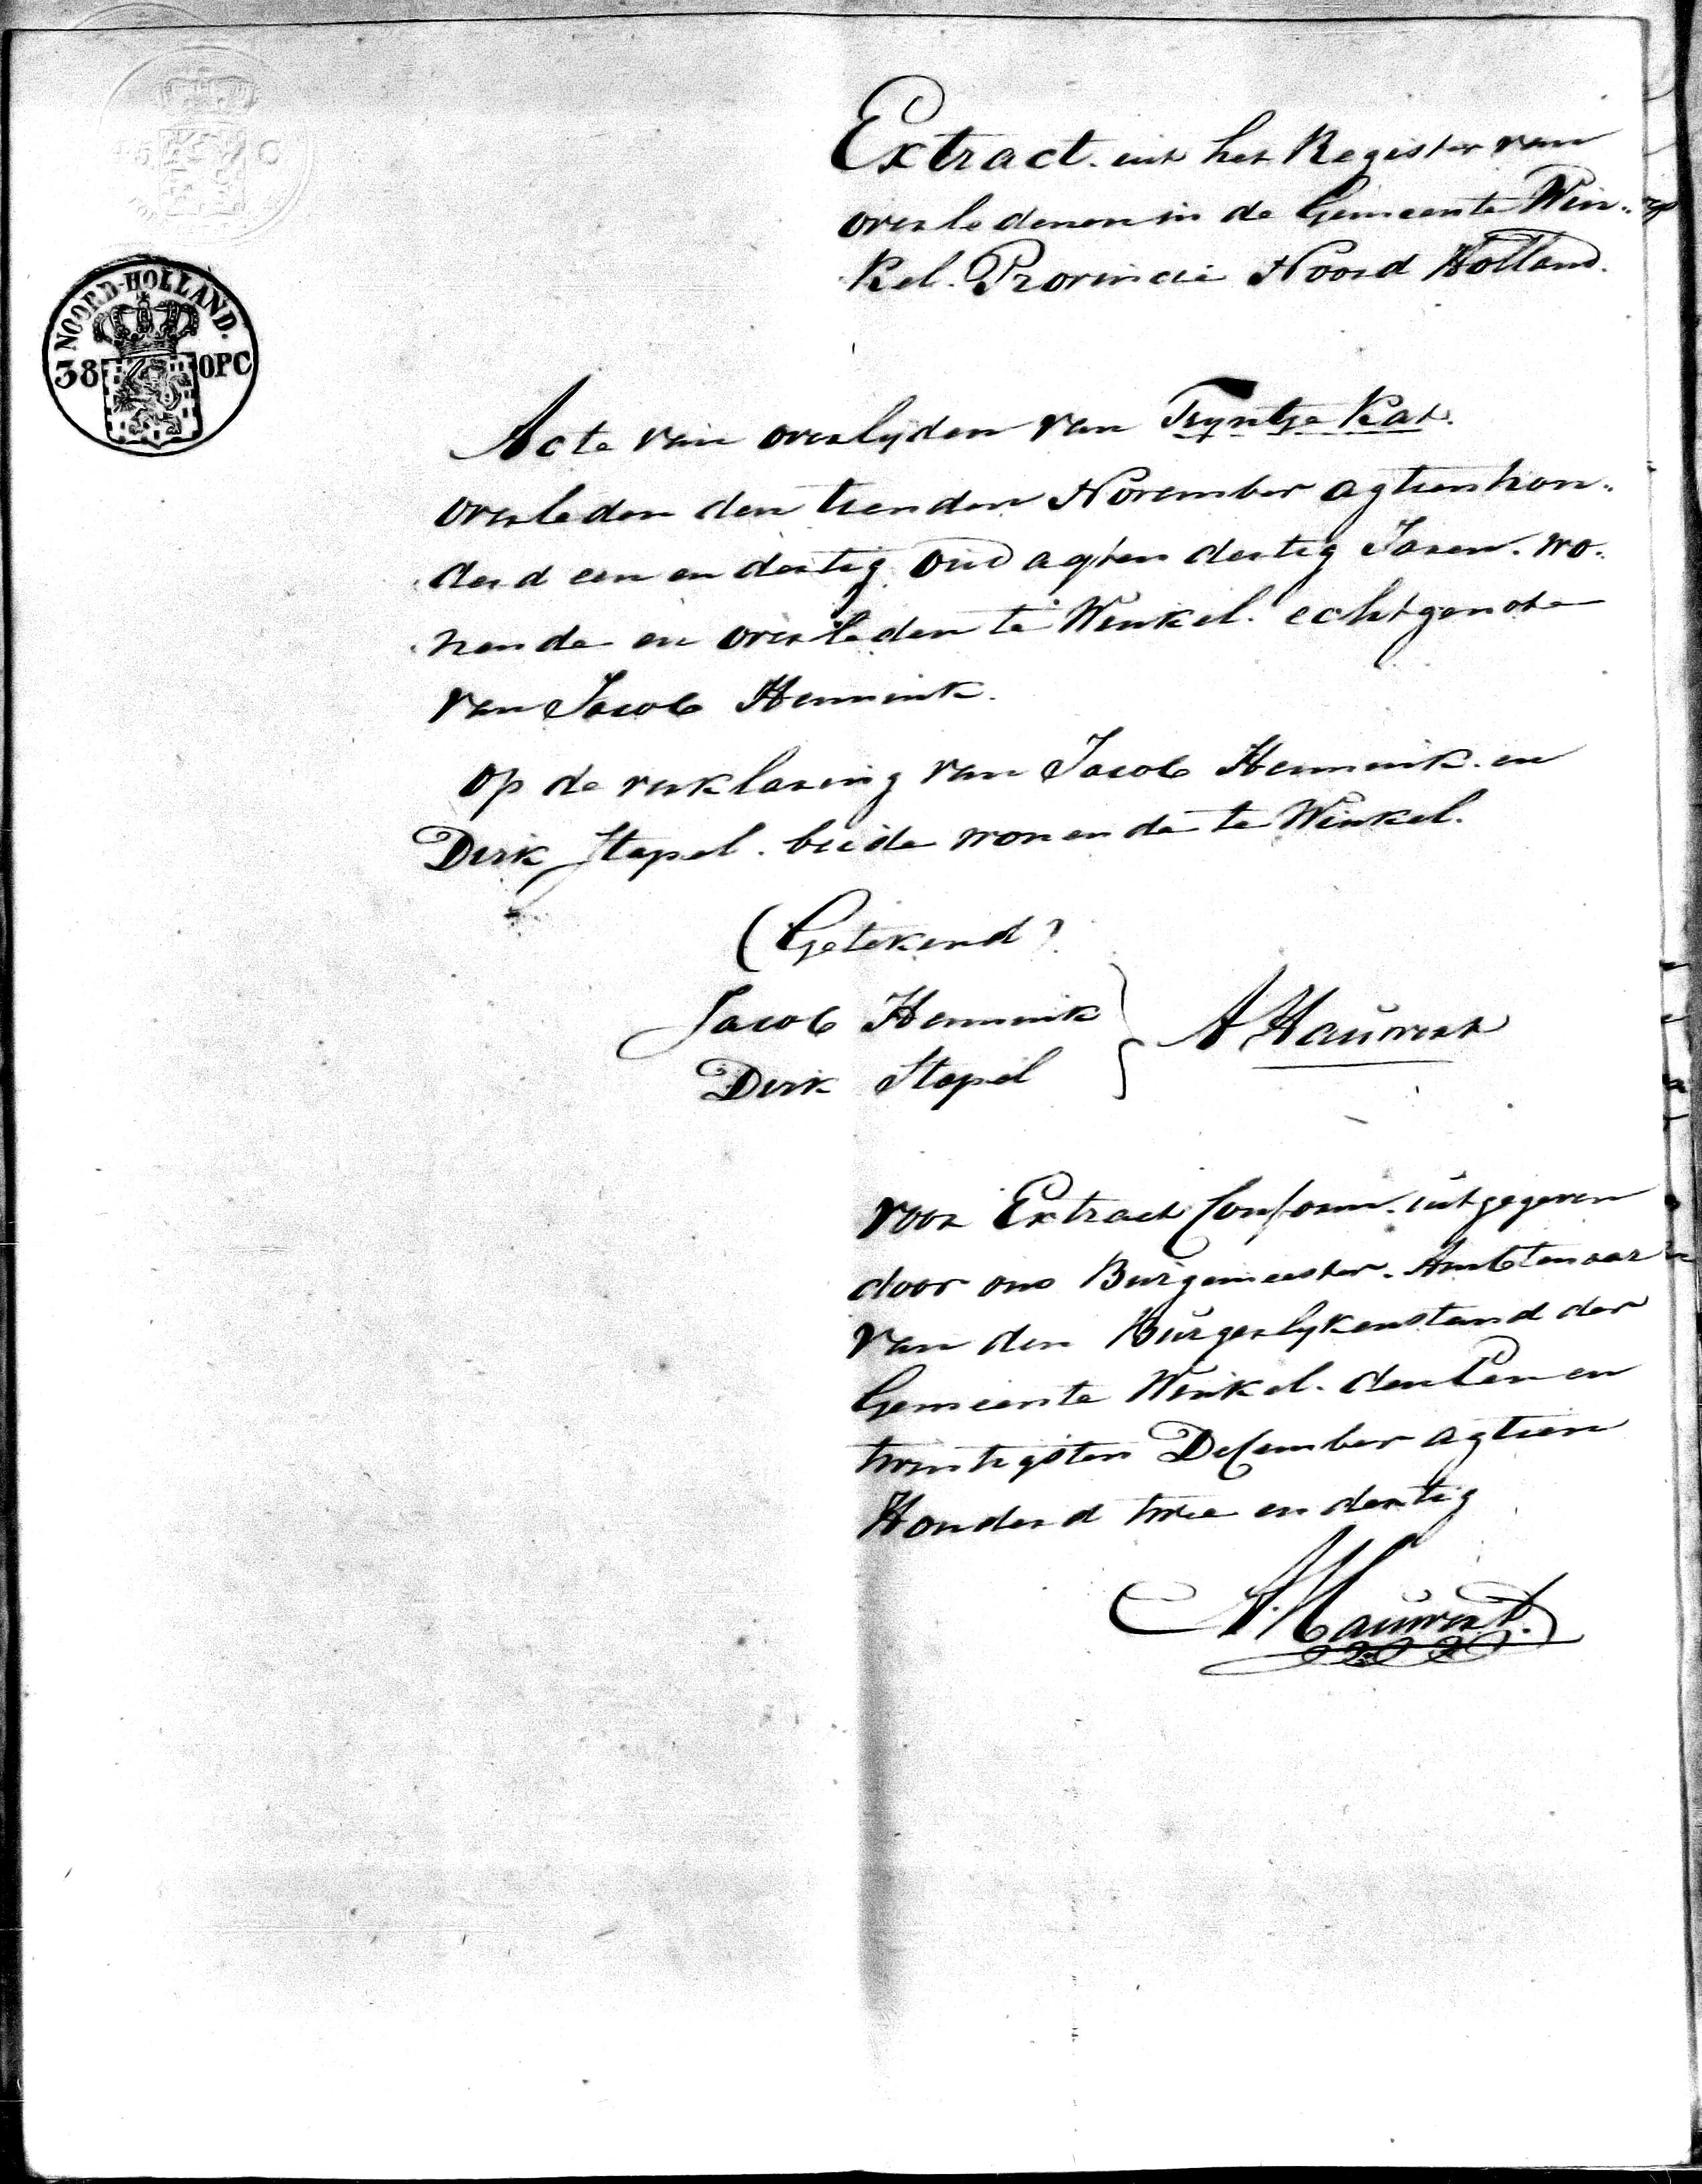 Extract uit het Register van
overledenen in de Gemeente Win-
kel. Provincie Noord Holland.
NOORD-HOLLAND.
38 OPC
Acte van overlyden van Tryntje Kat.
overleden den tienden November agtienhon-
derd een en dertig oud agt en dertig Jaren. wo-
nende en overleden te Winkel. echtgenote
van Jacob Hennink.
op de verklaring van Jacob Hennink en
Dirk Stapel. beide wonende te Winkel.
(Getekend)
Jacob Hennink
Dirk Stapel
A Hauwert
voor Extract Conform. uitgegeven
door ons Burgemeester. Ambtenaar
van den Burgerlykenstand der
Gemeente Winkel. den Een en
twintigsten December agtien
Honderd twee en dertig
A. Hauwert.